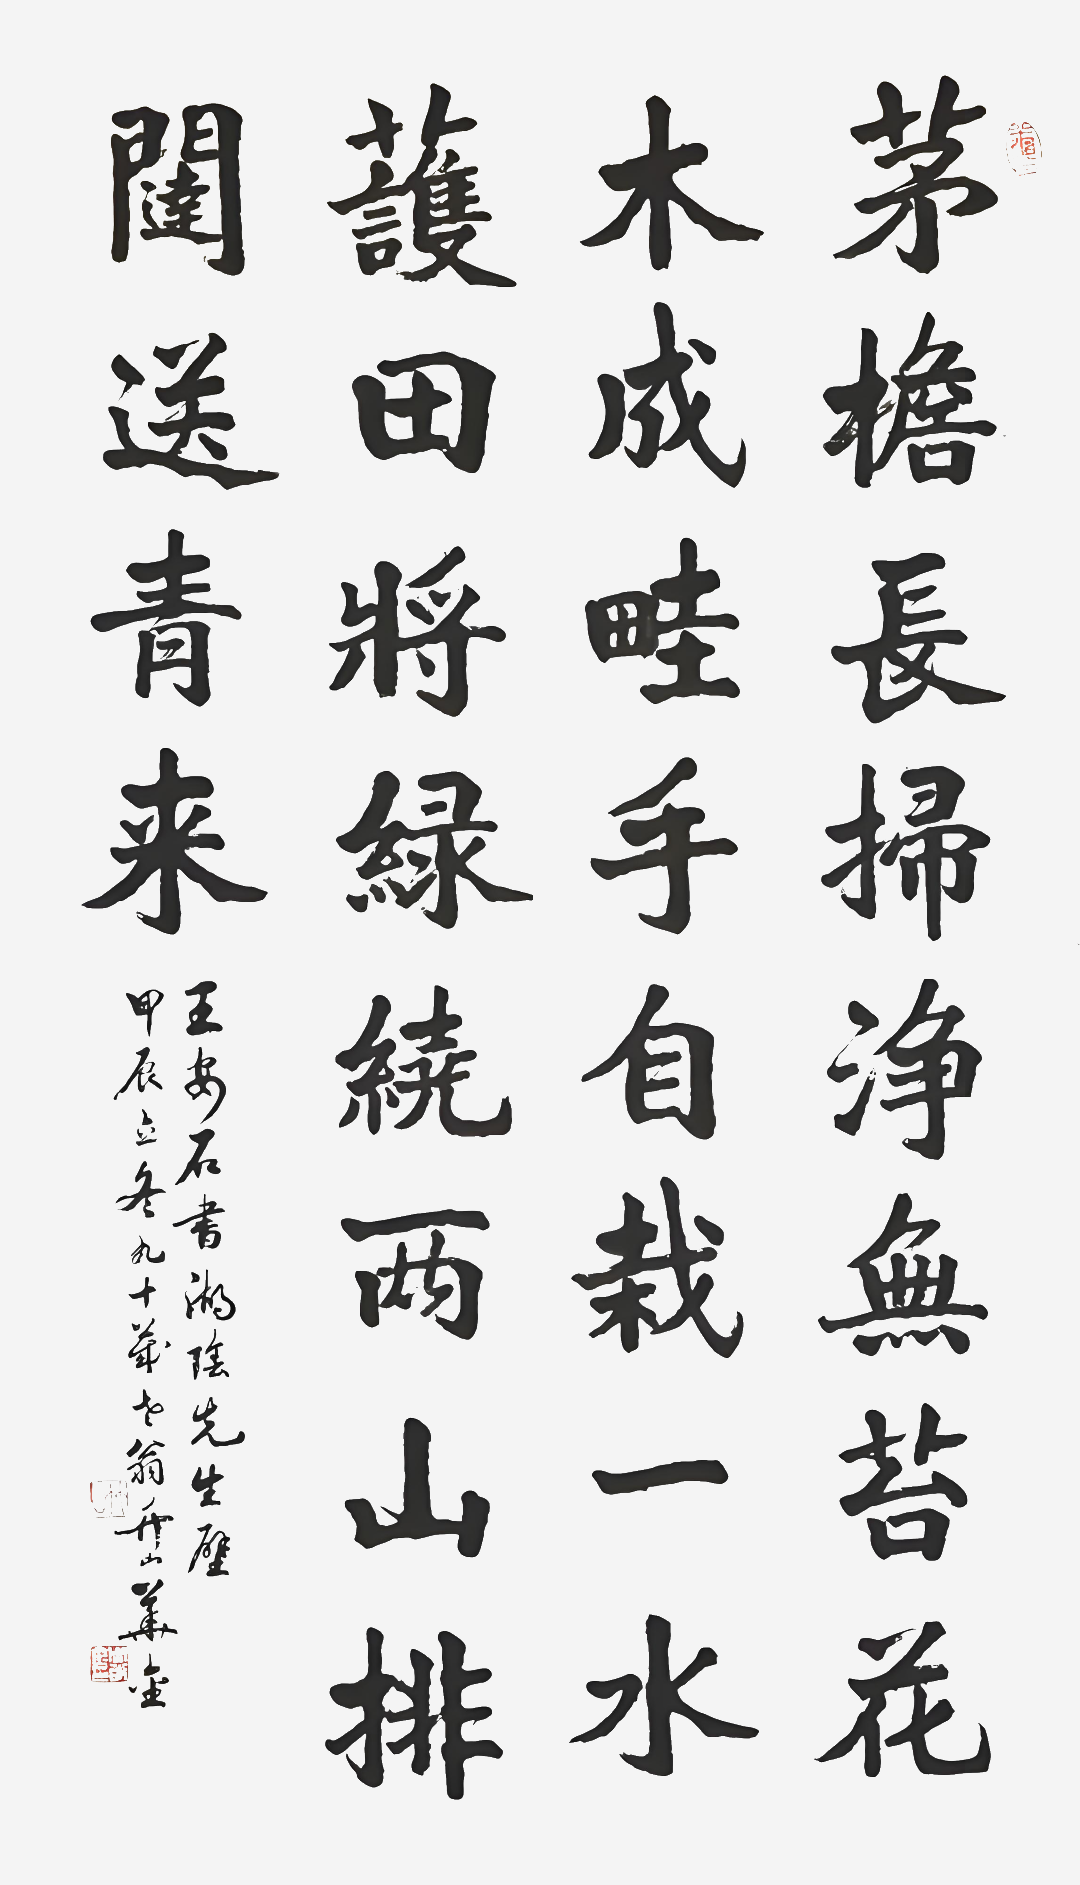 茅檐長掃淨無苔花
木成畦手自栽一水
護田將綠繞兩山排
闥送青来
王安石書湖陰先生壁
甲辰立冬九十歲老翁舜山華金